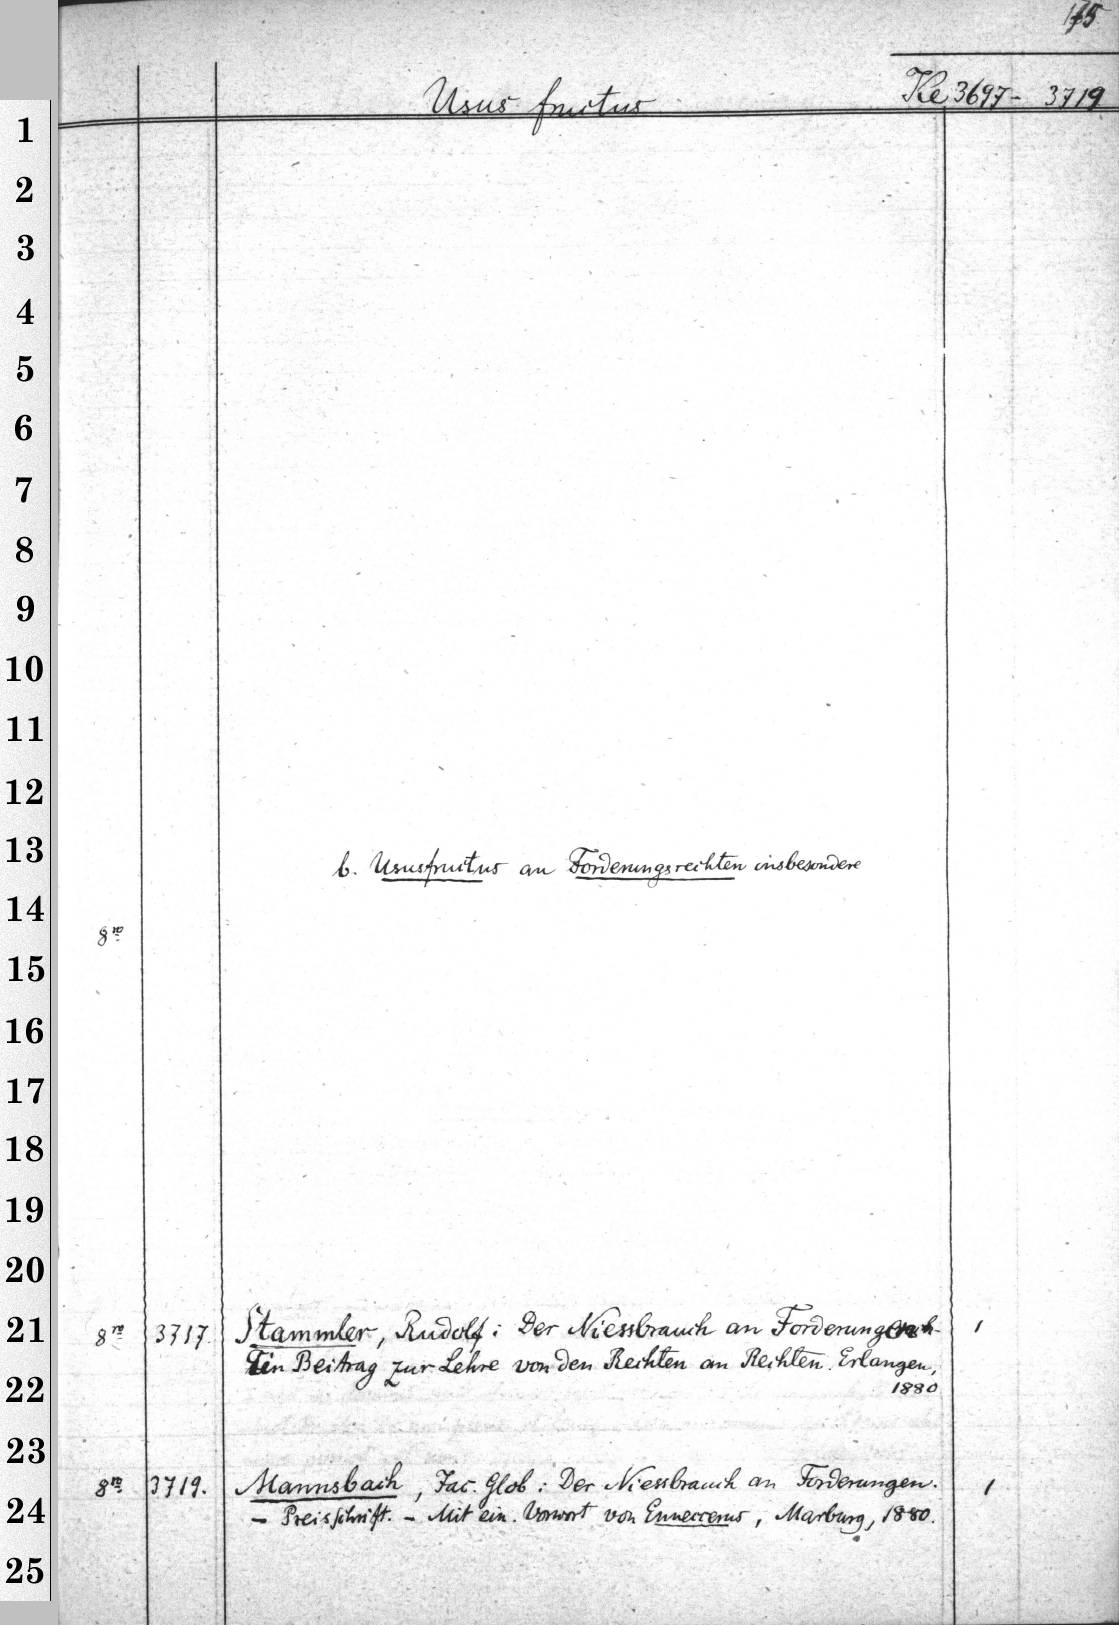 175
Usus fructus Ke 3697- 3719
1
2
3
4
5
6
7
8
9
10
11
12
13
b. Ususfructus an Forderungsrechten insbesondere
14
8º
15
16
17
18
19
20
21
8º 3717. Stammler, Rudolf: Der Niessbrauch an Forderungen. 1
Ein Beitrag zur Lehre von den Rechten an Rechten. Erlangen,
22
1880
23
8º 3719. Mannsbach, Jac. Glob: Der Niessbrauch an Forderungen. 1
24
- Preisschrift. - Mit ein. Vorwort von Enneccerus, Marburg, 1880.
25